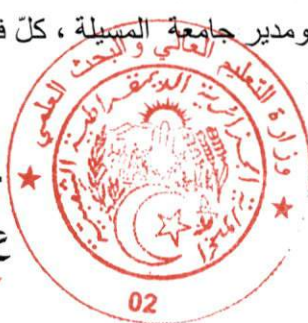 ومدير جامعة المسيلة ، كلّ ف
وزارة التعليم العالي والبحث العلمي
الجمهورية الجزائرية الديمقراطية الشعبية
02